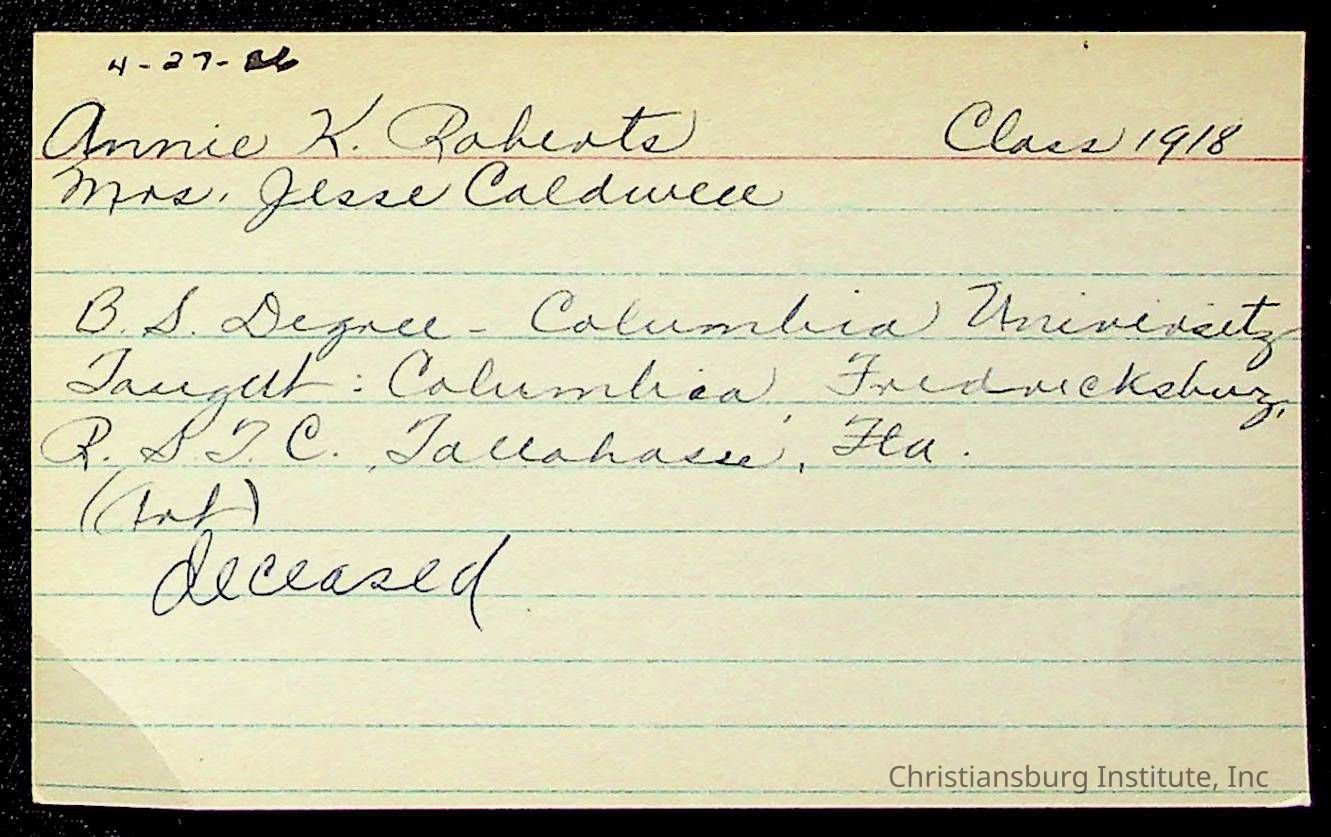 4-27-86
Annie K. Roberts Class 1918
Mrs. Jesse Caldwell
B. S. Degree - Columbia University
Taught: Columbia, Fredricksburg,
R. S. T. C. Tallahasse, Fla.
(Art)
deceased
Christiansburg Institute, Inc